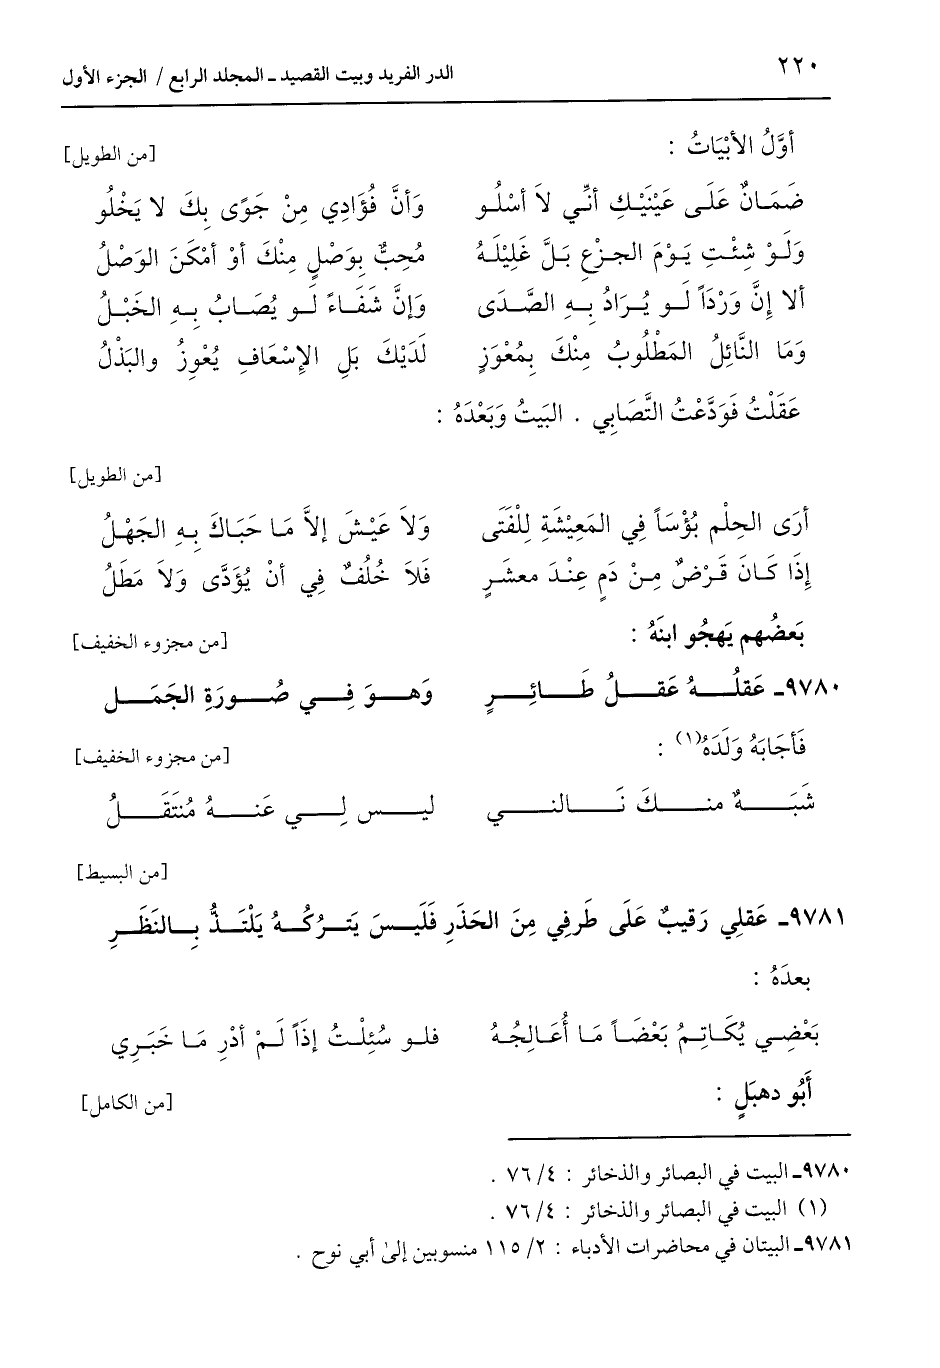 ٢٢٠ الدر الفريد وبيت القصيد ـ المجلد الرابع / الجزء الأول
أوَّلُ الأبْيَاتُ : [من الطويل]
ضَمَانٌ عَلَى عَيْنَيْكِ أنِّي لاَ أسْلُو وَأنَّ فُؤَادِي مِنْ جَوًى بِكَ لا يَخْلُو
وَلَوْ شِئْتِ يَوْمَ الجزْعِ بَلَّ غَلِيْلَهُ مُحِبٌّ بِوَصْلٍ مِنْكَ أوْ أمْكَنَ الوَصْلُ
ألا إنَّ وَرْدَاً لَو يُرَادُ بِهِ الصَّدَى وَإنَّ شَفَاءً لَو يُصَابُ بِهِ الخَبْلُ
وَمَا النَّائِلُ المَطْلُوبُ مِنْكَ بِمُعْوَزٍ لَدَيْكَ بَلِ الإسْعَافِ يُعْوِزُ والبَذْلُ
عَقَلْتُ فَوَدَّعْتُ التَّصَابِي . البَيتُ وَبَعْدَهُ :
[من الطويل]
أرَى الحِلْم بُؤْسَاً فِي المَعِيْشَةِ لِلْفَتَى وَلاَ عَيْشَ إلاَّ مَا حَبَاكَ بِهِ الجَهْلُ
إذَا كَانَ قَرْضٌ مِنْ دَمٍ عِنْدَ معشرٍ فَلاَ خُلُفٌ فِي أنْ يُؤَدَّى وَلاَ مَطَلُ
بَعضُهم يَهجُو ابنَهُ : [من مجزوء الخفيف]
٩٧٨٠ـ عَقلُهُ عَقلُ طَائِرٍ وَهوَ فِي صُورَةِ الجَمَلِ
فَأجَابَهُ وَلَدَهُ(١) : [من مجزوء الخفيف]
شَبَهٌ منكَ نَالني ليس لِي عَنهُ مُنتَقَلُ
[من البسيط]
٩٧٨١ـ عَقلِي رَقيبٌ عَلَى طَرفِي مِنَ الحَذَرِ فَلَيسَ يَترُكُهُ يَلْتَذُّ بِالنَظَرِ
بعدَهُ :
بَعْضِي يُكَاتِمُ بَعْضَاً مَا أُعَالِجُهُ فلو سُئِلْتُ إذَاً لَمْ أدْرِ مَا خَبَرِي
أَبُو دهبَلٍ : [من الكامل]
٩٧٨٠ـ البيت في البصائر والذخائر : ٧٦/٤ .
(١) البيت في البصائر والذخائر : ٧٦/٤ .
٩٧٨١ـ البيتان في محاضرات الأدباء : ١١٥/٢ منسوبين إلىٰ أبي نوح .